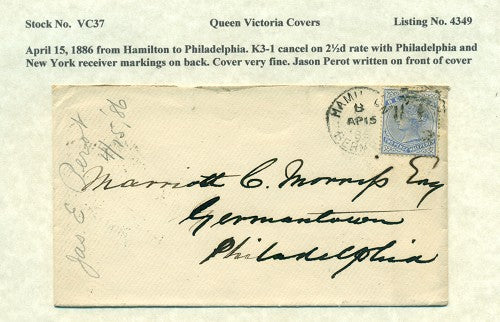 Stock No. VC37 Queen Victoria Covers Listing No. 4349
April 15, 1886 from Hamilton to Philadelphia. K3-1 cancel on 2½d rate with Philadelphia and
New York receiver markings on back. Cover very fine. Jason Perot written on front of cover
Jas E Perot
4/15/86
HAMIL
B
AP 15
86
BERM
Marriott C. Morris Esq
Germantown
Philadelphia